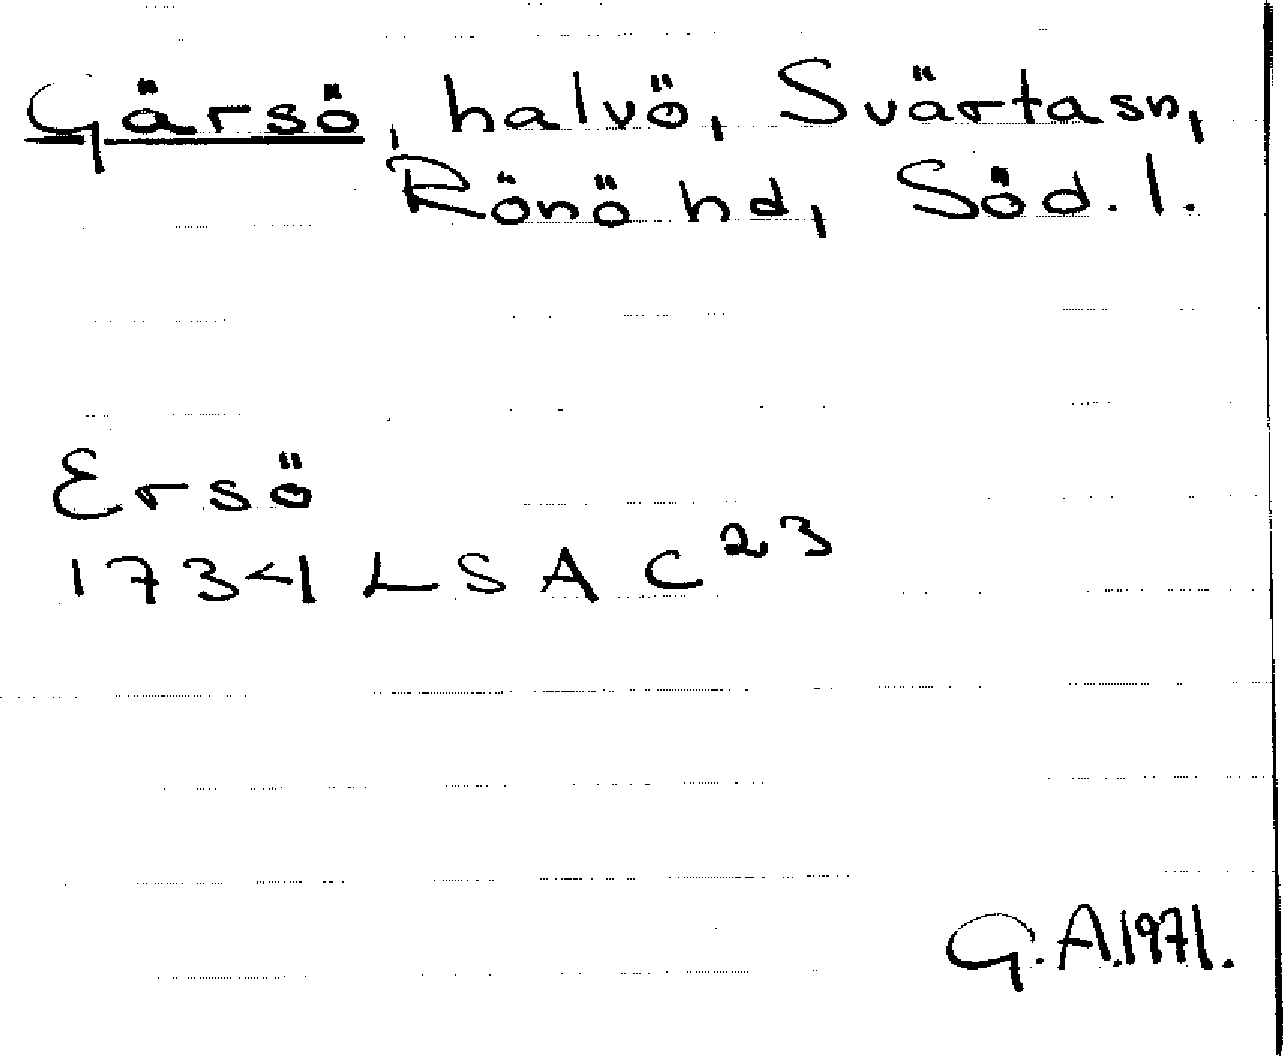 Gärsö, halvö, Svärtasn,
Rönö hd, Söd.l.
Ersö
1734 LSA C23
G.A.1971.